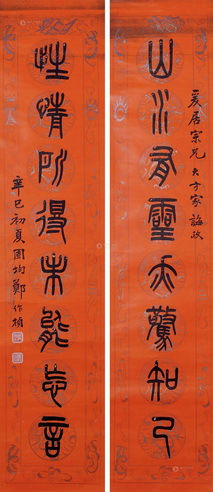 山水有靈亦驚知己
爰居宗兄大方家誨政
性情所得未能忘言
辛巳初夏國均鄭作楨